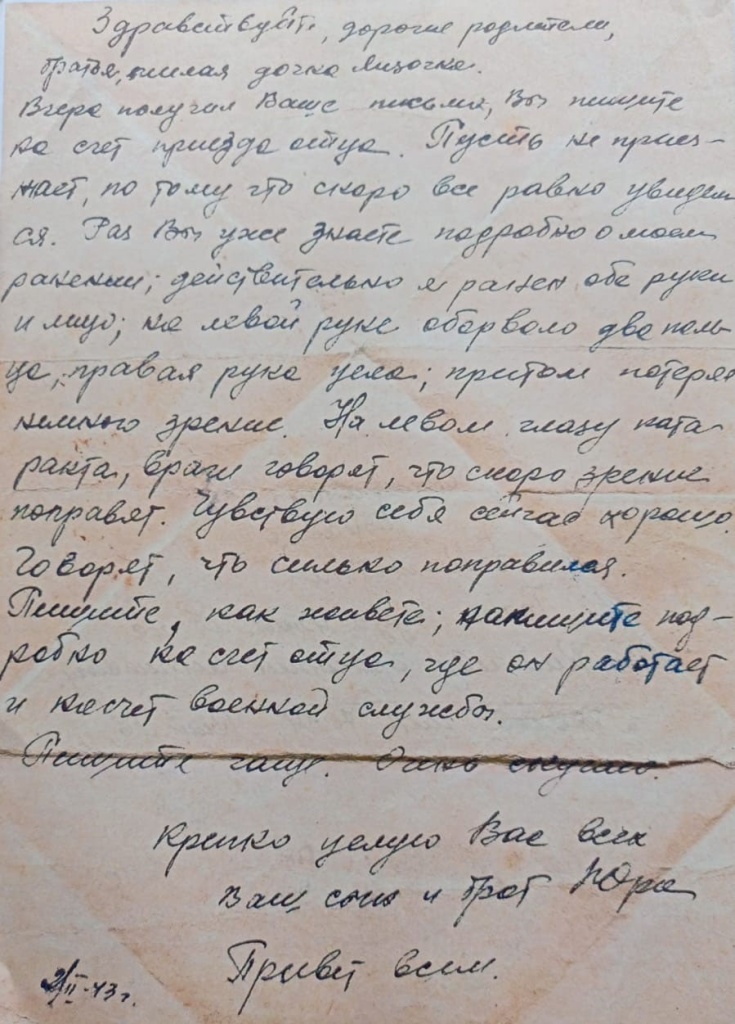 Здравствуйте, дорогие родители,
братья, милая дочка Лизочка.
Вчера получил Ваше письмо, Вы пишите
на счет приезда отца. Пусть не приез-
жает, по тому что скоро все равно увидем
ся. Раз Вы уже знаете подробно о моем
ранении; действительно я ранен обе руки
и лицо; на левой руке оборвало два паль-
ца, правая рука цела; притом потерял
немного зрение. На левом глазу ката
ракта, врачи говорят, что скоро зрение
поправят. Чувствую себя сейчас хорошо.
Говорят, что сильно поправился.
Пишите, как живете; напишите под-
робно на счет отца, где он работает
и насчет военной службы.
Пишите чаще. Очень скучно.
Крепко целую Вас всех
Ваш сын и брат Юра
Привет всем.
2/II-43 г.